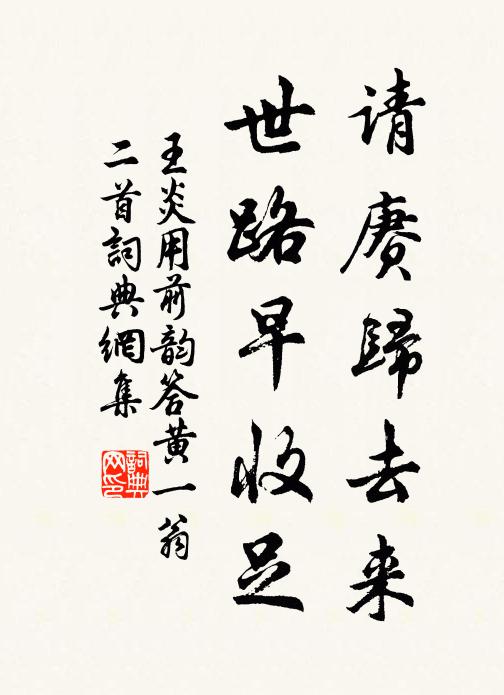 请赓歸去来
世路早收足
王炎用前韵答黄一翁
二首詞典網集
詞典网印